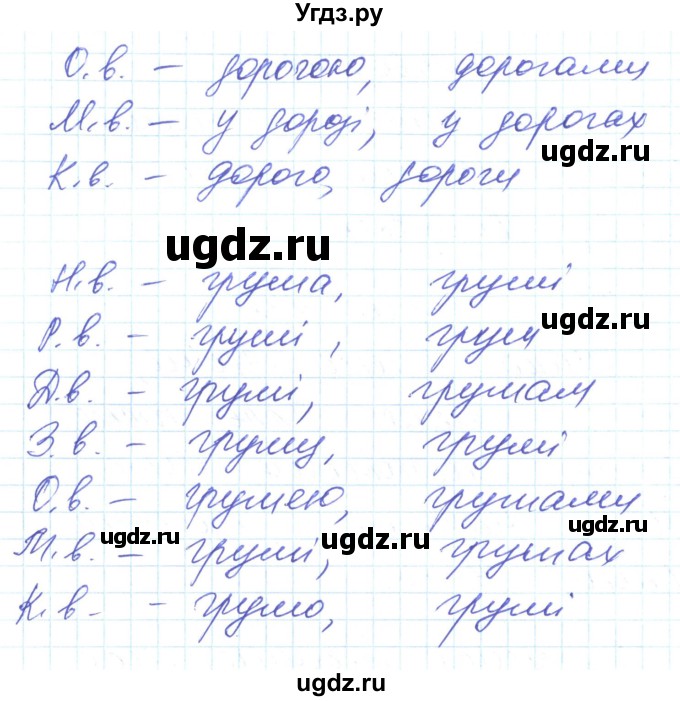 Угдз.ру
О.в. — дорогою, дорогами
М.в. — у дорозі, у дорогах
ugdz.ru
К.в. — дорого, дороги
ugdz.ru
Н.в. — груша, груші
ugdz.ru
Р.в. — груші, груш
Д.в. — груші, грушам
ugdz.ru
ugdz.ru
З.в. — грушу, груші
О.в. — грушею, грушами
ugdz.ru
ugdz.ru
ugdz.ru
М.в. — груші, грушах
К.в. — грушо, груші
ugdz.ru